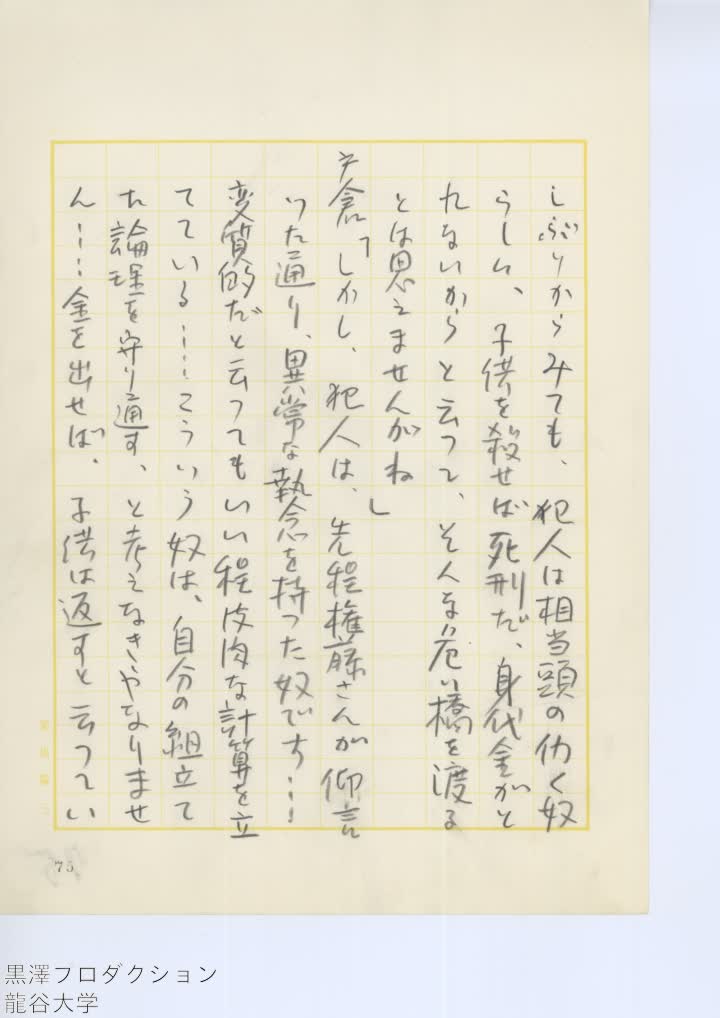 しぶりからみても、犯人は相当頭の仂く奴
らしい、子供を殺せば死刑だ、身代金がと
れないからと云つて、そんな危い橋を渡る
とは思えませんがね」
戸倉「しかし、犯人は、先程権藤さんが仰言
つた通り、異常な執念を持つた奴です…
変質的だと云つてもいい程皮肉な計算を立
てている……こういう奴は、自分の組立て
た論理を守り通す、と考えなきやなりませ
ん……金を出せば、子供は返すと云つてい
75
黒澤プロダクション
龍谷大学